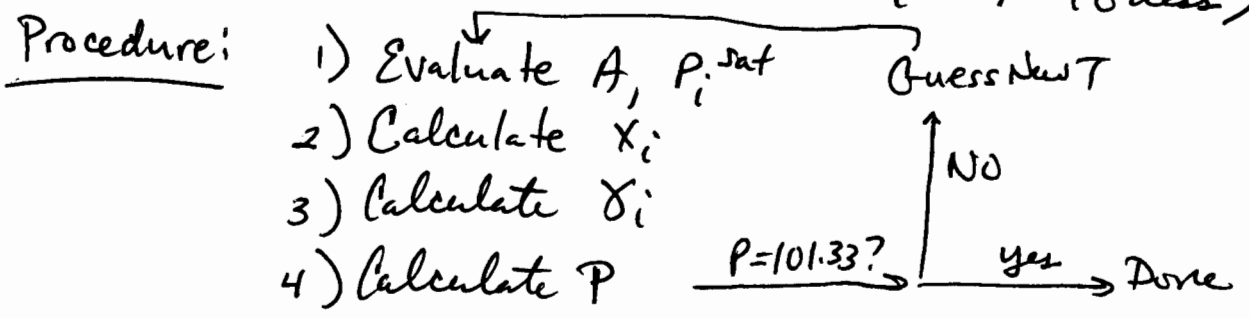 (Guess)
Procedure:
1) Evaluate A, Pᵢˢᵃᵗ
Guess New T
2) Calculate xᵢ
NO
3) Calculate γᵢ
4) Calculate P
P=101.33?
yes
Done